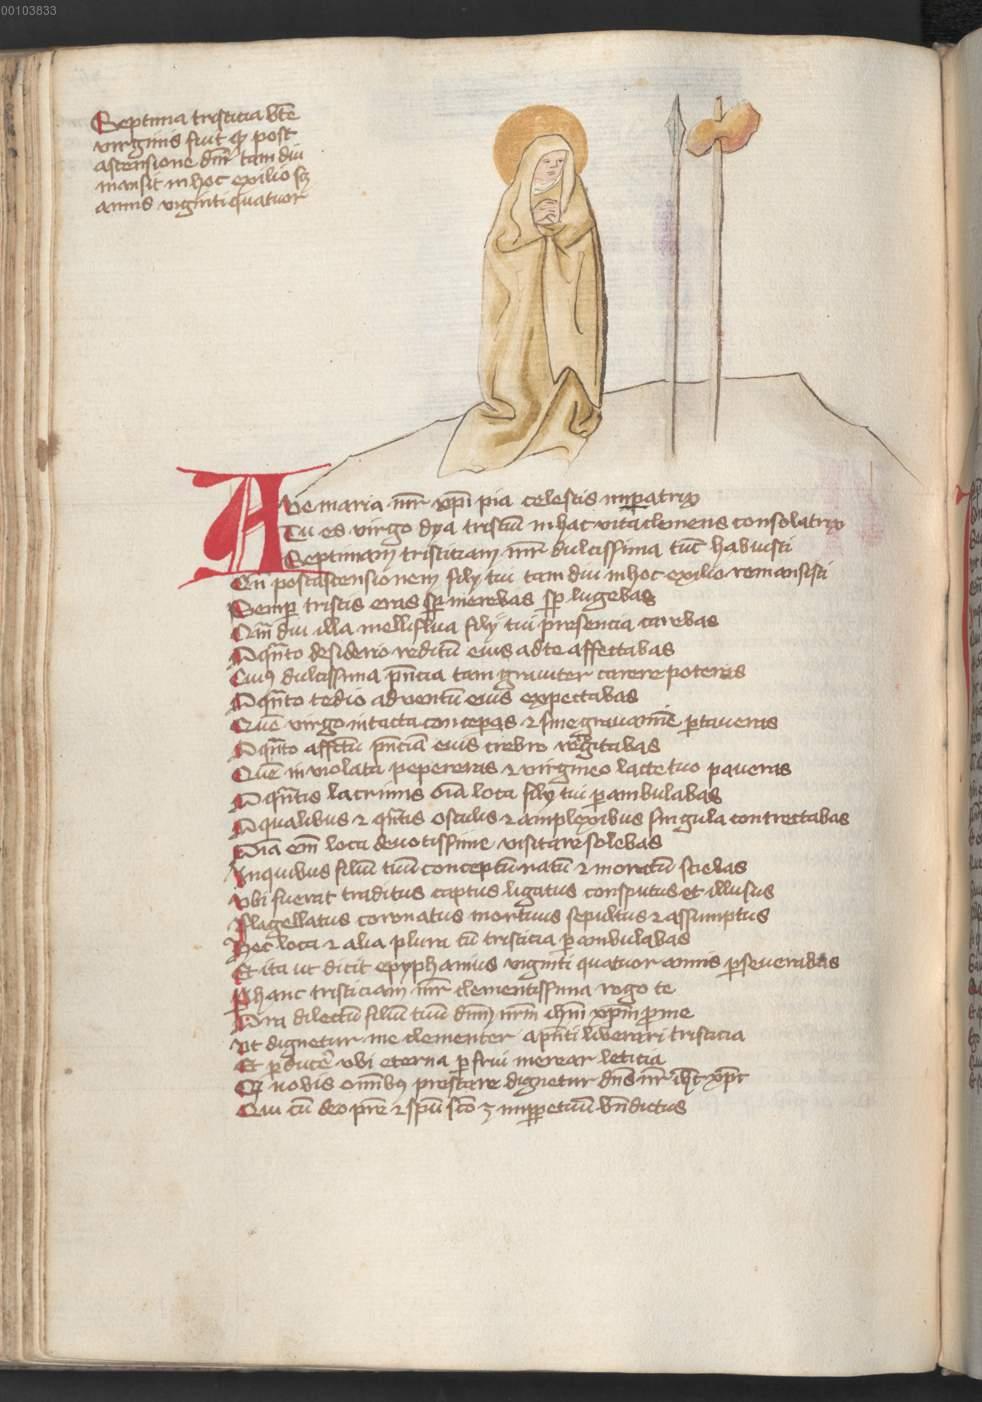 00103833
Septima tristicia bt̄e
virginis fuit qȝ post
ascensionē dnī tam diu
mansit in hoc exilio sȝ
annis viginti quatuor
Ave maria mr̄ xp̄i pia celestis imperatrix
Tu es virgo dya tristiū in hac vita clemens consolatrix
Septimam tristitiam mr̄ dulcissima tūc habuisti
Qn̄ post ascensionem filij tui tam diu in hoc exilio remansisti
Semp tristis eras sp̄ merebas sp̄ lugebas
Qm̄ diu illa melliflua filij tui presencia carebas
O qn̄to desiderio reditū eius ad te affectabas
Cuiꝰ dulcissima pn̄cia tam graviter carere poteras
O qn̄to tedio adventū eius expectabas
Quē virgo intacta conceperas ⁊ sine gravamīe portaveras
O qn̄to affctū pn̄ciā eius crebro cogitabas
Quē inviolata pepereras ⁊ virgineo lacte tuo paveras
O qn̄tis lacrimis oīa loca filij tui pambulabas
O qualibus ⁊ qn̄tis osculis ⁊ amplexibus singula contrectabas
Oīa em̄ loca devotissime visitare solebas
In quibus filiū tuū conceptū natū ⁊ mortuū sciebas
Vbi fuerat traditus captus ligatus consputus et illusus
Flagellatus coronatus mortuus sepultus ⁊ assumptus
Hec loca ⁊ alia plura cū tristicia pambulabas
Et ita ut dicit epyphanius viginti quatuor annis pseverabas
P hanc tristiciam mr̄ clementissima rogo te
Ora dilectū filiū tuū dnm̄ nrm̄ ihm̄ xpm̄ pro me
Vt dignetur me clementer a pn̄ti liberari tristicia
Et pducē ubi eterna pfrui merear leticia
Qȝ nobis omībꝰ prestare dignetur dn̄s nr̄ ihc̄ xpc̄
Qui cū deo pr̄e ⁊ spū sc̄o ȝ imppetuū bn̄dictus